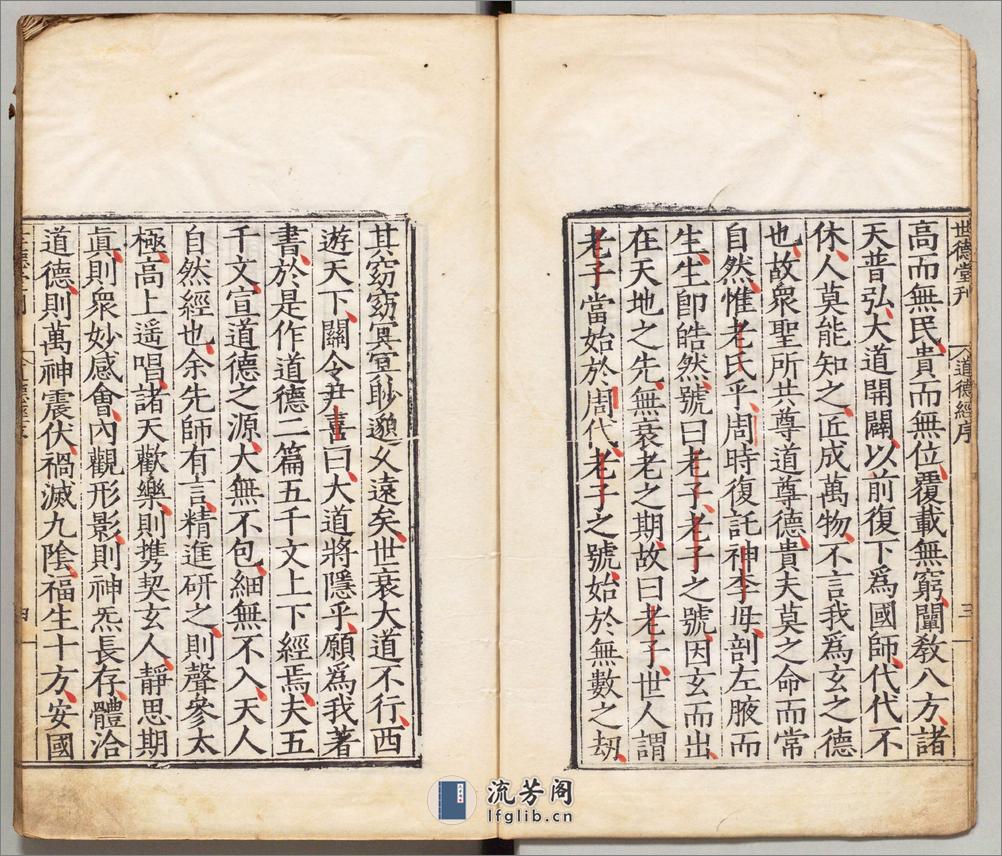 世德堂刊 道德經序 三
高而無民貴而無位覆載無窮闡教八方諸
天普弘大道開闢以前復下為國師代代不
休人莫能知之匠成萬物不言我為玄之德
也故衆聖所共尊道尊德貴夫莫之命而常
自然惟老氏乎周時復託神李母剖左腋而
生生即皓然號曰老子老子之號因玄而出
在天地之先無衰老之期故曰老子世人謂
老子當始於周代老子之號始於無數之劫
其窈窈冥冥眇邈久遠矣世衰大道不行西
遊天下關令尹喜曰大道將隱乎願為我著
書於是作道德二篇五千文上下經焉夫五
千文宣道德之源大無不包細無不入天人
自然經也余先師有言精進研之則聲參太
極高上遥唱諸天歡樂則携契玄人靜思期
眞則衆妙感會內觀形影則神炁長存體洽
道德則萬神震伏禍滅九陰福生十方安國
四
流芳阁
lfglib.cn